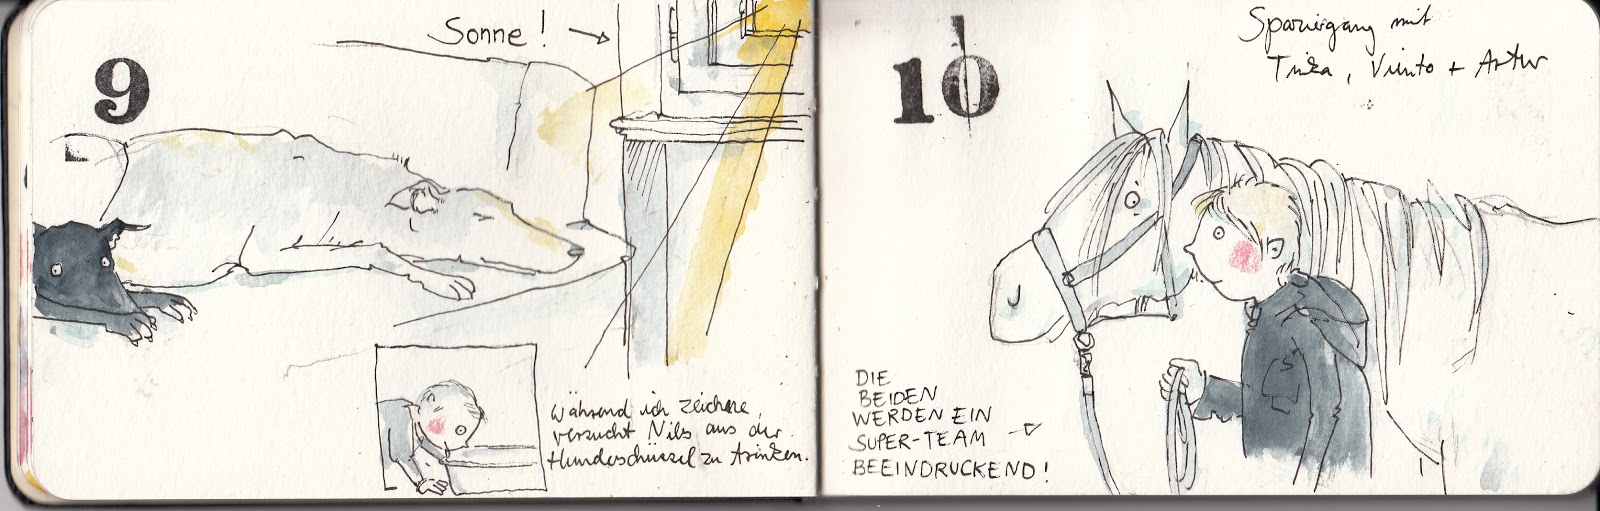 9
Sonne!
Während ich zeichne,
versucht Nils aus der
Hundeschüssel zu trinken.
10
Spaziergang mit
Trixa, Viento + Artur
DIE
BEIDEN
WERDEN EIN
SUPER-TEAM
BEEINDRUCKEND!